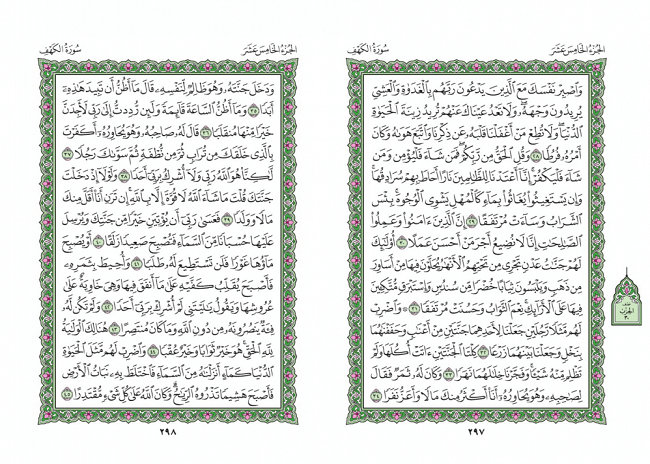 الجزء الخامس عشر
سورة الكهف
وَٱصۡبِرۡ نَفۡسَكَ مَعَ ٱلَّذِينَ يَدۡعُونَ رَبَّهُم بِٱلۡغَدَوٰةِ وَٱلۡعَشِيِّ
يُرِيدُونَ وَجۡهَهُۥۖ وَلَا تَعۡدُ عَيۡنَاكَ عَنۡهُمۡ تُرِيدُ زِينَةَ ٱلۡحَيَوٰةِ
ٱلدُّنۡيَاۖ وَلَا تُطِعۡ مَنۡ أَغۡفَلۡنَا قَلۡبَهُۥ عَن ذِكۡرِنَا وَٱتَّبَعَ هَوَىٰهُ وَكَانَ
أَمۡرُهُۥ فُرُطٗا ٢٨ وَقُلِ ٱلۡحَقُّ مِن رَّبِّكُمۡۖ فَمَن شَآءَ فَلۡيُؤۡمِن وَمَن
شَآءَ فَلۡيَكۡفُرۡۚ إِنَّآ أَعۡتَدۡنَا لِلظَّٰلِمِينَ نَارًا أَحَاطَ بِهِمۡ سُرَادِقُهَاۚ
وَإِن يَسۡتَغِيثُواْ يُغَاثُواْ بِمَآءٖ كَٱلۡمُهۡلِ يَشۡوِي ٱلۡوُجُوهَۚ بِئۡسَ
ٱلشَّرَابُ وَسَآءَتۡ مُرۡتَفَقًا ٢٩ إِنَّ ٱلَّذِينَ ءَامَنُواْ وَعَمِلُواْ
ٱلصَّٰلِحَٰتِ إِنَّا لَا نُضِيعُ أَجۡرَ مَنۡ أَحۡسَنَ عَمَلًا ٣٠ أُوْلَٰٓئِكَ
لَهُمۡ جَنَّٰتُ عَدۡنٖ تَجۡرِي مِن تَحۡتِهِمُ ٱلۡأَنۡهَٰرُ يُحَلَّوۡنَ فِيهَا مِنۡ أَسَاوِرَ
مِن ذَهَبٖ وَيَلۡبَسُونَ ثِيَابًا خُضۡرٗا مِّن سُندُسٖ وَإِسۡتَبۡرَقٖ مُّتَّكِـِٔينَ
فِيهَا عَلَى ٱلۡأَرَآئِكِۚ نِعۡمَ ٱلثَّوَابُ وَحَسُنَتۡ مُرۡتَفَقٗا ٣١ وَٱضۡرِبۡ
لَهُم مَّثَلٗا رَّجُلَيۡنِ جَعَلۡنَا لِأَحَدِهِمَا جَنَّتَيۡنِ مِنۡ أَعۡنَٰبٖ وَحَفَفۡنَٰهُمَا
بِنَخۡلٖ وَجَعَلۡنَا بَيۡنَهُمَا زَرۡعٗا ٣٢ كِلۡتَا ٱلۡجَنَّتَيۡنِ ءَاتَتۡ أُكُلَهَا وَلَمۡ
تَظۡلِم مِّنۡهُ شَيۡـٔٗاۚ وَفَجَّرۡنَا خِلَٰلَهُمَا نَهَرٗا ٣٣ وَكَانَ لَهُۥ ثَمَرٞ فَقَالَ
لِصَٰحِبِهِۦ وَهُوَ يُحَاوِرُهُۥٓ أَنَا۠ أَكۡثَرُ مِنكَ مَالٗا وَأَعَزُّ نَفَرٗا ٣٤
٢٩٧
الجزء الخامس عشر
سورة الكهف
وَدَخَلَ جَنَّتَهُۥ وَهُوَ ظَالِمٞ لِّنَفۡسِهِۦ قَالَ مَآ أَظُنُّ أَن تَبِيدَ هَٰذِهِۦٓ
أَبَدٗا ٣٥ وَمَآ أَظُنُّ ٱلسَّاعَةَ قَآئِمَةٗ وَلَئِن رُّدِدتُّ إِلَىٰ رَبِّي لَأَجِدَنَّ
خَيۡرٗا مِّنۡهَا مُنقَلَبٗا ٣٦ قَالَ لَهُۥ صَاحِبُهُۥ وَهُوَ يُحَاوِرُهُۥٓ أَكَفَرۡتَ
بِٱلَّذِي خَلَقَكَ مِن تُرَابٖ ثُمَّ مِن نُّطۡفَةٖ ثُمَّ سَوَّىٰكَ رَجُلٗا ٣٧
لَّٰكِنَّا۠ هُوَ ٱللَّهُ رَبِّي وَلَآ أُشۡرِكُ بِرَبِّيٓ أَحَدٗا ٣٨ وَلَوۡلَآ إِذۡ دَخَلۡتَ
جَنَّتَكَ قُلۡتَ مَا شَآءَ ٱللَّهُ لَا قُوَّةَ إِلَّا بِٱللَّهِۚ إِن تَرَنِ أَنَا۠ أَقَلَّ مِنكَ
مَالٗا وَوَلَدٗا ٣٩ فَعَسَىٰ رَبِّيٓ أَن يُؤۡتِيَنِ خَيۡرٗا مِّن جَنَّتِكَ وَيُرۡسِلَ
عَلَيۡهَا حُسۡبَانٗا مِّنَ ٱلسَّمَآءِ فَتُصۡبِحَ صَعِيدٗا زَلَقًا ٤٠ أَوۡ يُصۡبِحَ
مَآؤُهَا غَوۡرٗا فَلَن تَسۡتَطِيعَ لَهُۥ طَلَبٗا ٤١ وَأُحِيطَ بِثَمَرِهِۦ
فَأَصۡبَحَ يُقَلِّبُ كَفَّيۡهِ عَلَىٰ مَآ أَنفَقَ فِيهَا وَهِيَ خَاوِيَةٌ عَلَىٰ
عُرُوشِهَا وَيَقُولُ يَٰلَيۡتَنِي لَمۡ أُشۡرِكۡ بِرَبِّيٓ أَحَدٗا ٤٢ وَلَمۡ تَكُن لَّهُۥ
فِئَةٞ يَنصُرُونَهُۥ مِن دُونِ ٱللَّهِ وَمَا كَانَ مُنتَصِرًا ٤٣ هُنَالِكَ ٱلۡوَلَٰيَةُ
لِلَّهِ ٱلۡحَقِّۚ هُوَ خَيۡرٞ ثَوَابٗا وَخَيۡرٌ عُقۡبٗا ٤٤ وَٱضۡرِبۡ لَهُم مَّثَلَ ٱلۡحَيَوٰةِ
ٱلدُّنۡيَا كَمَآءٍ أَنزَلۡنَٰهُ مِنَ ٱلسَّمَآءِ فَٱخۡتَلَطَ بِهِۦ نَبَاتُ ٱلۡأَرۡضِ
فَأَصۡبَحَ هَشِيمٗا تَذۡرُوهُ ٱلرِّيَٰحُۗ وَكَانَ ٱللَّهُ عَلَىٰ كُلِّ شَيۡءٖ مُّقۡتَدِرًا ٤٥
٢٩٨